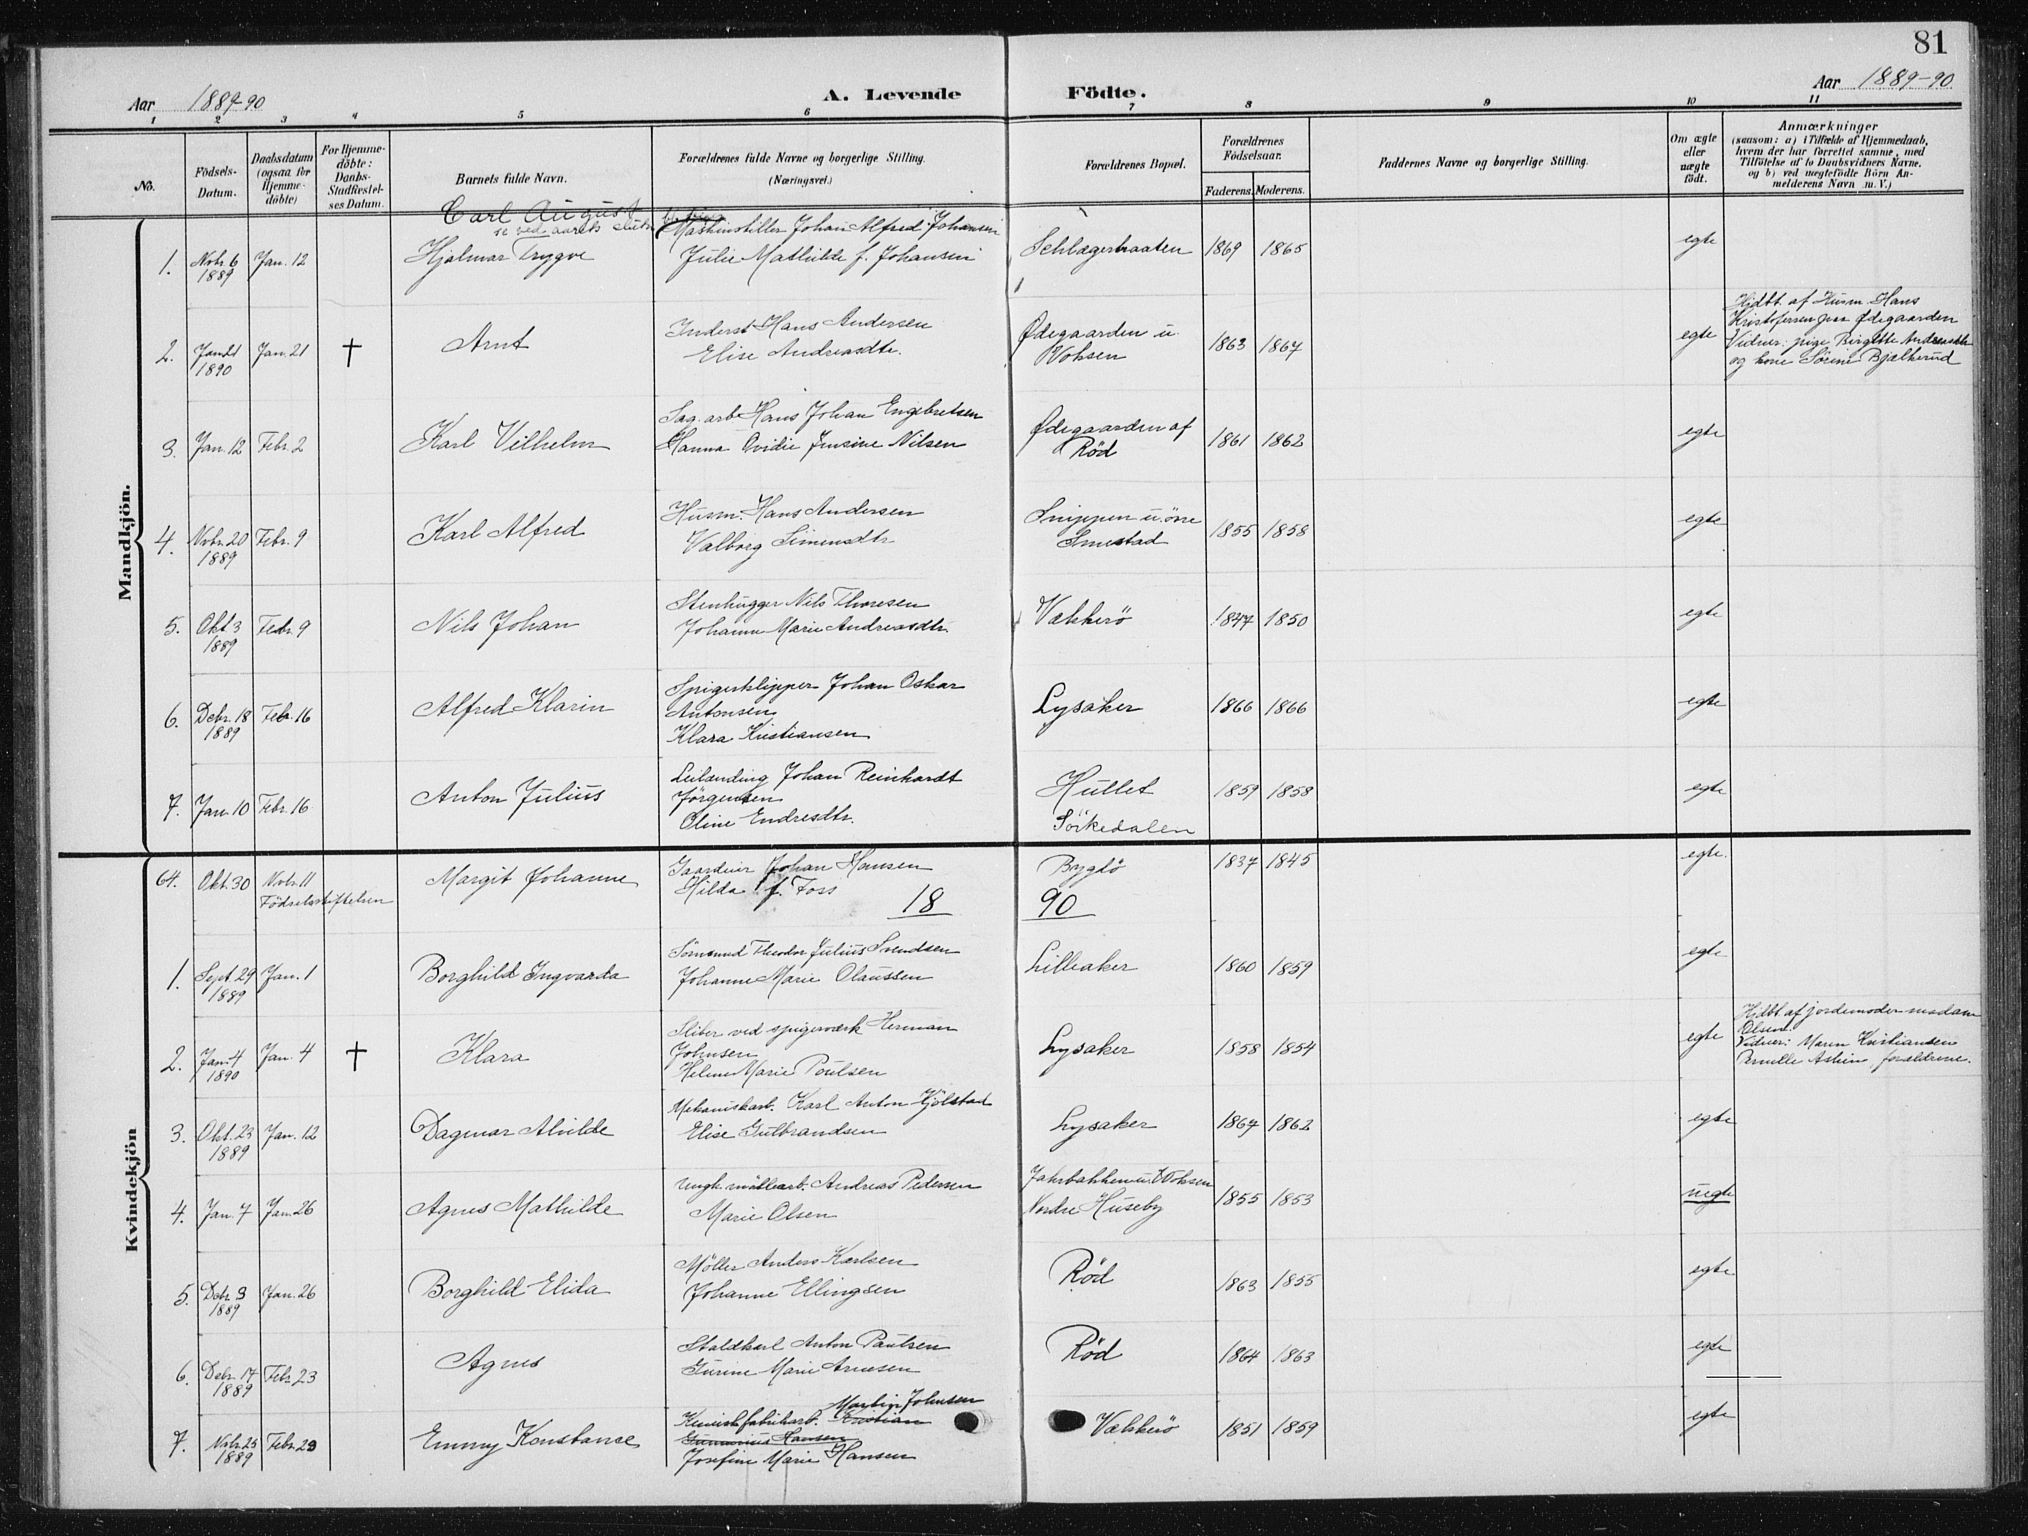 81
Aar 1889-90
A. Levende
Födte.
Aar 1889-90
1 2 3 4 5 6 7 8 9 10 11
No.
Födsels-
Datum.
Daabsdatum
(ogsaa for
Hjemme-
döbte)
For Hjemme-
döbte:
Daabs-
Stadfæstel-
ses Datum.
Barnets fulde Navn.
Forældrenes fulde Navne og borgerlige Stilling.
(Næringsvei.)
Forældrenes Bopæl.
Forældrenes
Födselsaar.
Faderens. Moderens.
Faddernes Navne og borgerlige Stilling.
Om ægte
eller
uægte
födt.
Anmærkninger
(saasom: a) i Tilfælde af Hjemmedaab,
hvem der har forrettet samme, med
Tilföielse af to Daabsvidners Navne,
og b) ved uægtefödte Börn An-
melderens Navn m. V.)
Mandkjön.
Carl August
se ved aarets slutn
1. Nobr. 6 Jan. 12 Hjalmar Trygve Maskinstiller Johan Alfred Johansen Schlægerbraaten 1869 1865 egte
1889 Julie Mathilde f. Johansen
2. Jan 21 Jan. 21 † Arnt Inderst Hans Andersen Ødegaarden u. 1863 1867 egte
1890 Elise Andreasdtr. Voksen
Hjdbt. af Husm. Hans
Kristofersen paa Ødegaarden
Vidner: pige Birgitte Andreasdtr
og kone Sörine Bjælkerud
3. Jan. 12 Febr. 2 Karl Vilhelm Sag. arb. Hans Johan Engebretsen Ødegaarden af 1861 1862 egte
Hanna Ovidie Jensine Nilsen Röd
4. Nobr. 20 Febr. 9 Karl Alfred Husm. Hans Andersen Snippen u. öre 1855 1858 egte
1889 Valborg Simensdtr Smestad
5. Okt. 3 Febr. 9 Nils Johan Stenhugger Nils Thoresen Vækkerö 1847 1850 egte
1889 Johanne Marie Andreasdtr.
6. Debr. 18 Febr. 16 Alfred Klarin Spigerklipper Johan Oskar Lysaker 1866 1866 egte
1889 Antonsen
Klara Kristiansen
7. Jan. 10 Febr. 16 Anton Julius Leilænding Johan Reinhardt Hullet 1859 1858 egte
Jörgensen
Oline Endresdtr. Sörkedalen
Kvindekjön
64. Okt. 30 Nobr. 11 Margit Johanne Gaardeier Johan Hansen Bygdö 1837 1845 egte.
Födselsstiftelsen Hilda f. Foss
18 90
1. Sept. 29 Jan. 1 Borghild Ingvarda Sömand Theodor Julius Svendsen Lilleaker 1860 1859 egte
1889 Johanne Marie Olaussen
2. Jan. 4 Jan. 4 † Klara Sliber ved spigerværk Herman Lysaker 1858 1854 egte
1890 Johnsen
Helene Marie Poulsen
Hjdbt af jordemoder madam
Olsen.
Vidner: Maren Kristiansen
Pernille forældrene.
3. Okt. 23 Jan. 12 Dagmar Alvilde Mekaniskarb. Karl Anton Kjölstad Lysaker 1864 1862 egte
1889 Elise Gulbrandsen
4. Jan. 7 Jan. 26 Agnes Mathilde Ungk. möllearb. Andreas Pedersen Jahrbakken u. Voksen 1855 1853 uegte
Marie Olsen Nordre Huseby
5. Debr 3 Jan. 26 Borghild Elida Möller Anders Karlsen Röd 1863 1855 egte
1889 Johanne Ellingsen
6. Debr. 17 Febr. 23 Agnes Staldkarl Anton Paulsen Röd 1864 1863 egte
1889 Gurine Marie Arnesen
Martin Johnsen
7. Nobr. 25 Febr. 23 Emmy Konstanse Kemisk fabrikarb. Kristian Vækkerö 1851 1859 egte
1889 Gunnerius Hansen
Josefine Marie Hansen